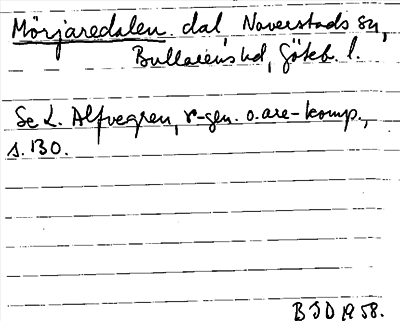 Mörjaredalen. dal, Naverstads sn,
Bullarens hd, Göteb. l.
Se L. Alfvegren, r-gen. o. are-komp.,
s. 130.
BJD 1958.